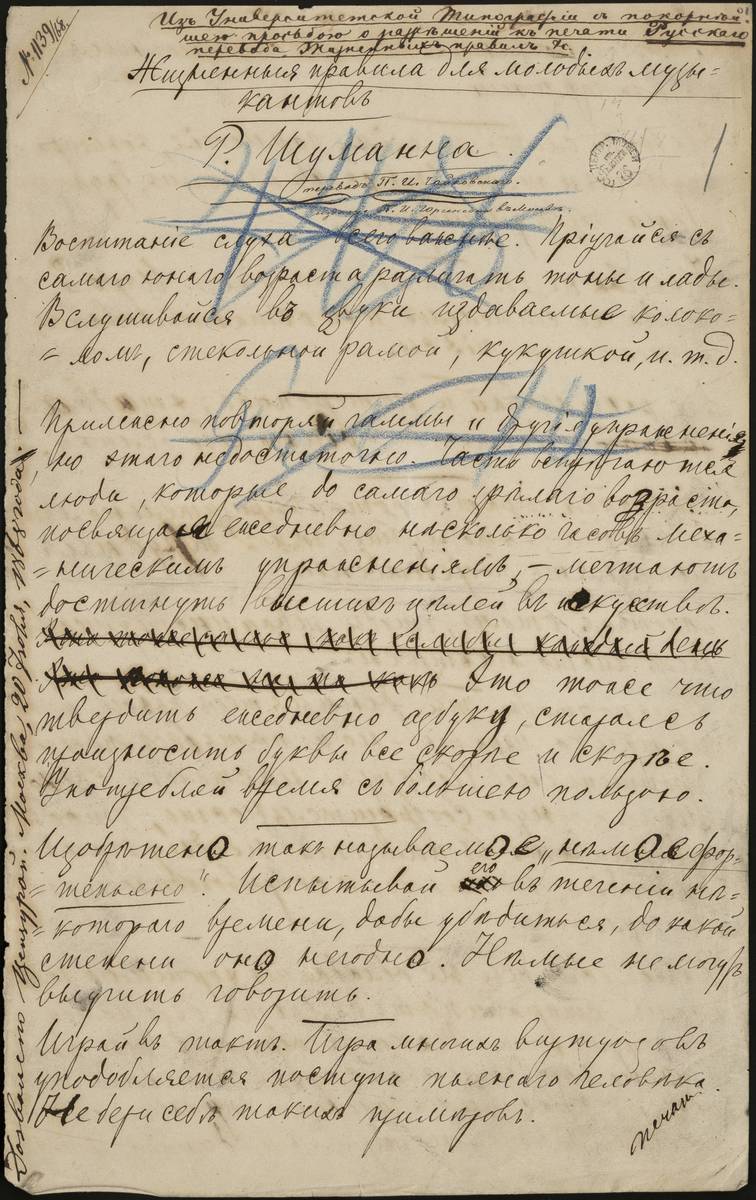 № 1139/68.
Изъ Университетской Типографіи съ покорнѣй-
шею просьбою о разрѣшеніи къ печати Русскаго
перевода Жизненныхъ правилъ &c.
Жизненныя правила для молодыхъ музы-
кантовъ
Р. Шуманна.
переводъ П. И. Чайковскаго.
П. И. Юргенсона въ Москвѣ.
1
Воспитаніе слуха всего важнѣе. Пріучайся съ
самаго юнаго возраста различать тоны и лады.
Вслушивайся въ звуки издаваемые колоко-
=ломъ, стекольной рамой, кукушкой, и. т. д.
Прилежно повторяй гаммы и другія упражненія
, но этаго недостаточно. Часто встрѣчаются
люди, которые до самаго зрѣлаго возраста,
посвящая ежедневно нѣсколько часовъ меха-
=ническимъ упражненіямъ, – мечтаютъ
достигнуть высшихъ цѣлей въ искуствѣ.
каждый день
Это тоже что
твердить ежедневно азбуку, стараясь
произносить буквы все скорѣе и скорѣе.
Употребляй время съ большею пользою.
Изобрѣтено такъ называемое „нѣмое фор-
=тепьяно". Испытывай его въ теченіи нѣ-
=котораго времени, дабы убѣдиться, до какой
степени оно негодно. Нѣмые не могутъ
выучить говорить.
Играй въ тактъ. Игра многихъ виртуозовъ
уподобляется поступи пьянаго человѣка.
Не бери себѣ такихъ примѣровъ.
печат
Дозволено Цензурой. Москва, 20 Іюня, 1868 года. —